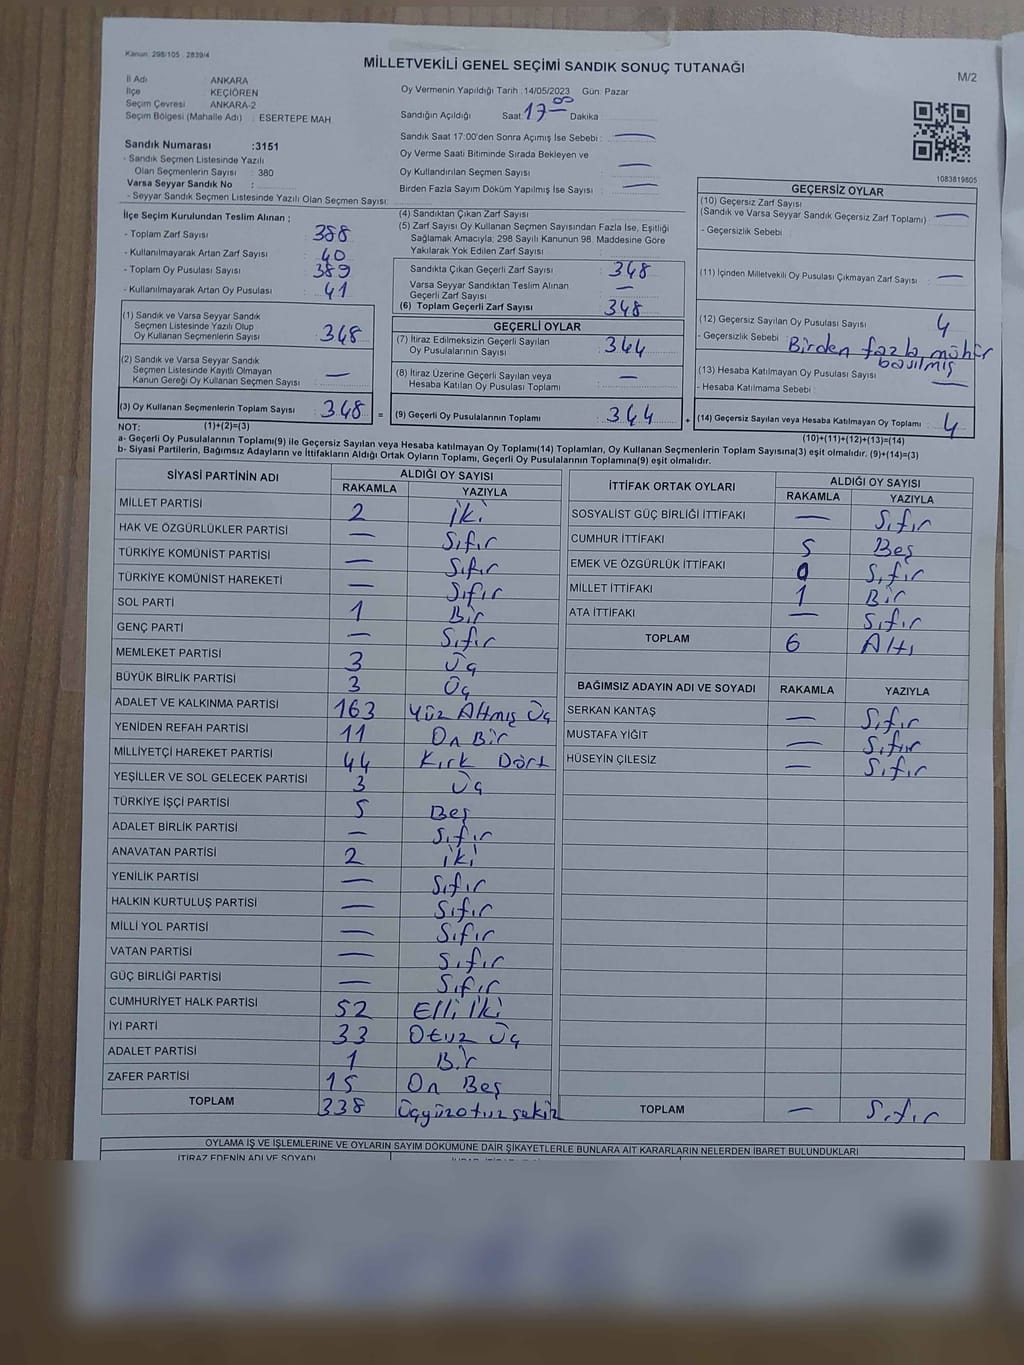 Kanun: 298/105 : 2839/4
MİLLETVEKİLİ GENEL SEÇİMİ SANDIK SONUÇ TUTANAĞI
M/2
İl Adı : ANKARA
İlçe : KEÇİÖREN
Seçim Çevresi : ANKARA-2
Seçim Bölgesi (Mahalle Adı) : ESERTEPE MAH.
Sandık Numarası :3151
- Sandık Seçmen Listesinde Yazılı
Olan Seçmenlerin Sayısı : 380
Varsa Seyyar Sandık No :
- Seyyar Sandık Seçmen Listesinde Yazılı Olan Seçmen Sayısı:
Oy Vermenin Yapıldığı Tarih : 14/05/2023 Gün: Pazar
Sandığın Açıldığı Saat: 17 00 Dakika
Sandık Saat 17:00'den Sonra Açımış İse Sebebi : —
Oy Verme Saati Bitiminde Sırada Bekleyen ve
Oy Kullandırılan Seçmen Sayısı : —
Birden Fazla Sayım Döküm Yapılmış İse Sayısı : —
1083819805
İlçe Seçim Kurulundan Teslim Alınan ;
- Toplam Zarf Sayısı : 388
- Kullanılmayarak Artan Zarf Sayısı : 40
- Toplam Oy Pusulası Sayısı : 389
- Kullanılmayarak Artan Oy Pusulası : 41
(1) Sandık ve Varsa Seyyar Sandık
Seçmen Listesinde Yazılı Olup
Oy Kullanan Seçmenlerin Sayısı : 348
(2) Sandık ve Varsa Seyyar Sandık
Seçmen Listesinde Kayıtlı Olmayan
Kanun Gereği Oy Kullanan Seçmen Sayısı : —
(3) Oy Kullanan Seçmenlerin Toplam Sayısı : 348 =
(1)+(2)=(3)
(4) Sandıktan Çıkan Zarf Sayısı :
(5) Zarf Sayısı Oy Kullanan Seçmen Sayısından Fazla İse, Eşitliği
Sağlamak Amacıyla; 298 Sayılı Kanunun 98. Maddesine Göre
Yakılarak Yok Edilen Zarf Sayısı :
Sandıkta Çıkan Geçerli Zarf Sayısı : 348
Varsa Seyyar Sandıktan Teslim Alınan
Geçerli Zarf Sayısı : —
(6) Toplam Geçerli Zarf Sayısı : 348
GEÇERLİ OYLAR
(7) İtiraz Edilmeksizin Geçerli Sayılan
Oy Pusulalarının Sayısı : 344
(8) İtiraz Üzerine Geçerli Sayılan veya
Hesaba Katılan Oy Pusulası Toplamı : —
(9) Geçerli Oy Pusulalarının Toplamı : 344 +
GEÇERSİZ OYLAR
(10) Geçersiz Zarf Sayısı
(Sandık ve Varsa Seyyar Sandık Geçersiz Zarf Toplamı) : —
- Geçersizlik Sebebi :
(11) İçinden Milletvekili Oy Pusulası Çıkmayan Zarf Sayısı : —
(12) Geçersiz Sayılan Oy Pusulası Sayısı : 4
- Geçersizlik Sebebi : Birden fazla mühür
basılmış
(13) Hesaba Katılmayan Oy Pusulası Sayısı : —
- Hesaba Katılmama Sebebi :
(14) Geçersiz Sayılan veya Hesaba Katılmayan Oy Toplamı : 4
(10)+(11)+(12)+(13)=(14)
NOT:
a- Geçerli Oy Pusulalarının Toplamı(9) ile Geçersiz Sayılan veya Hesaba katılmayan Oy Toplamı(14) Toplamları, Oy Kullanan Seçmenlerin Toplam Sayısına(3) eşit olmalıdır. (9)+(14)=(3)
b- Siyasi Partilerin, Bağımsız Adayların ve İttifakların Aldığı Ortak Oyların Toplamı, Geçerli Oy Pusulalarının Toplamına(9) eşit olmalıdır.
SİYASİ PARTİNİN ADI ALDIĞI OY SAYISI
RAKAMLA YAZIYLA
MİLLET PARTİSİ 2 İki
HAK VE ÖZGÜRLÜKLER PARTİSİ — Sıfır
TÜRKİYE KOMÜNİST PARTİSİ — Sıfır
TÜRKİYE KOMÜNİST HAREKETİ — Sıfır
SOL PARTİ 1 Bir
GENÇ PARTİ — Sıfır
MEMLEKET PARTİSİ 3 Üç
BÜYÜK BİRLİK PARTİSİ 3 Üç
ADALET VE KALKINMA PARTİSİ 163 Yüz Altmış Üç
YENİDEN REFAH PARTİSİ 11 On Bir
MİLLİYETÇİ HAREKET PARTİSİ 44 Kırk Dört
YEŞİLLER VE SOL GELECEK PARTİSİ 3 Üç
TÜRKİYE İŞÇİ PARTİSİ 5 Beş
ADALET BİRLİK PARTİSİ — Sıfır
ANAVATAN PARTİSİ 2 iki
YENİLİK PARTİSİ — Sıfır
HALKIN KURTULUŞ PARTİSİ — Sıfır
MİLLİ YOL PARTİSİ — Sıfır
VATAN PARTİSİ — Sıfır
GÜÇ BİRLİĞİ PARTİSİ — Sıfır
CUMHURİYET HALK PARTİSİ 52 Elli İki
İYİ PARTİ 33 Otuz Üç
ADALET PARTİSİ 1 Bir
ZAFER PARTİSİ 15 On Beş
TOPLAM 338 Üçyüzotuzsekiz
İTTİFAK ORTAK OYLARI ALDIĞI OY SAYISI
RAKAMLA YAZIYLA
SOSYALIST GÜÇ BİRLİĞİ İTTİFAKI — Sıfır
CUMHUR İTTİFAKI 5 Beş
EMEK VE ÖZGÜRLÜK İTTİFAKI 0 Sıfır
MİLLET İTTİFAKI 1 Bir
ATA İTTİFAKI — Sıfır
TOPLAM 6 Altı
BAĞIMSIZ ADAYIN ADI VE SOYADI RAKAMLA YAZIYLA
SERKAN KANTAŞ — Sıfır
MUSTAFA YİĞİT — Sıfır
HÜSEYİN ÇİLESİZ — Sıfır
TOPLAM — Sıfır
OYLAMA İŞ VE İŞLEMLERİNE VE OYLARIN SAYIM DÖKÜMÜNE DAİR ŞİKAYETLERLE BUNLARA AİT KARARLARIN NELERDEN İBARET BULUNDUKLARI
İTİRAZ EDENİN ADI VE SOYADI